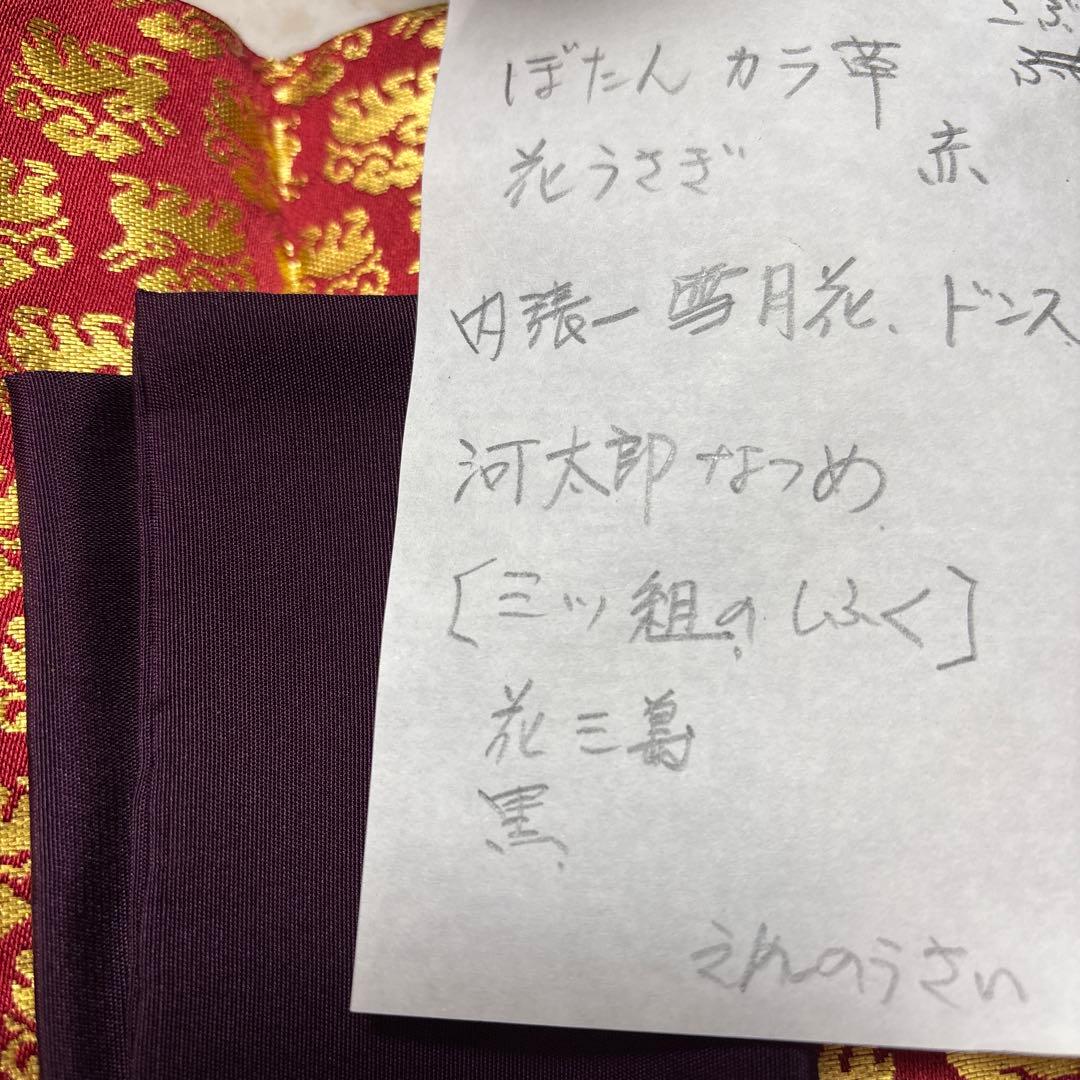 ぼたん カラ草
花うさぎ 赤
内張ー雪月花、ドンス
河太郎 なつめ
[三ツ組の しふく]
花三島
黒